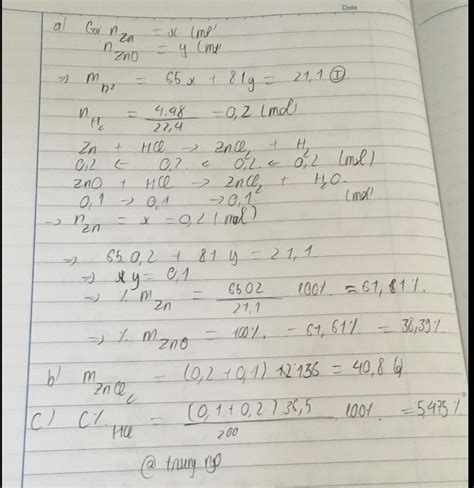 Date
a) Gọi n Zn = x (mol
n ZnO = y (mol
=> m h² = 65x + 81y = 21,1 (I)
n H₂ = 4,48/22,4 = 0,2 (mol)
Zn + HCl -> ZnCl₂ + H₂
0,2 <- 0,2 <- 0,2 <- 0,2 (mol)
ZnO + HCl -> ZnCl₂ + H₂O
0,1 -> 0,1 -> 0,1 (mol
-> n Zn = x = 0,2 (mol)
=> 65.0,2 + 81y = 21,1
=> xy = 0,1
=> % m Zn = 65.02/21,1 . 100% = 61,81%
=> % m ZnO = 100% - 61,61% = 38,39%
b) m ZnCl₂ = (0,2 + 0,1) 136 = 40,8 (g)
c) C% HCl = (0,1+0,2) 36,5/200 . 100% = 5,475%
@ trung